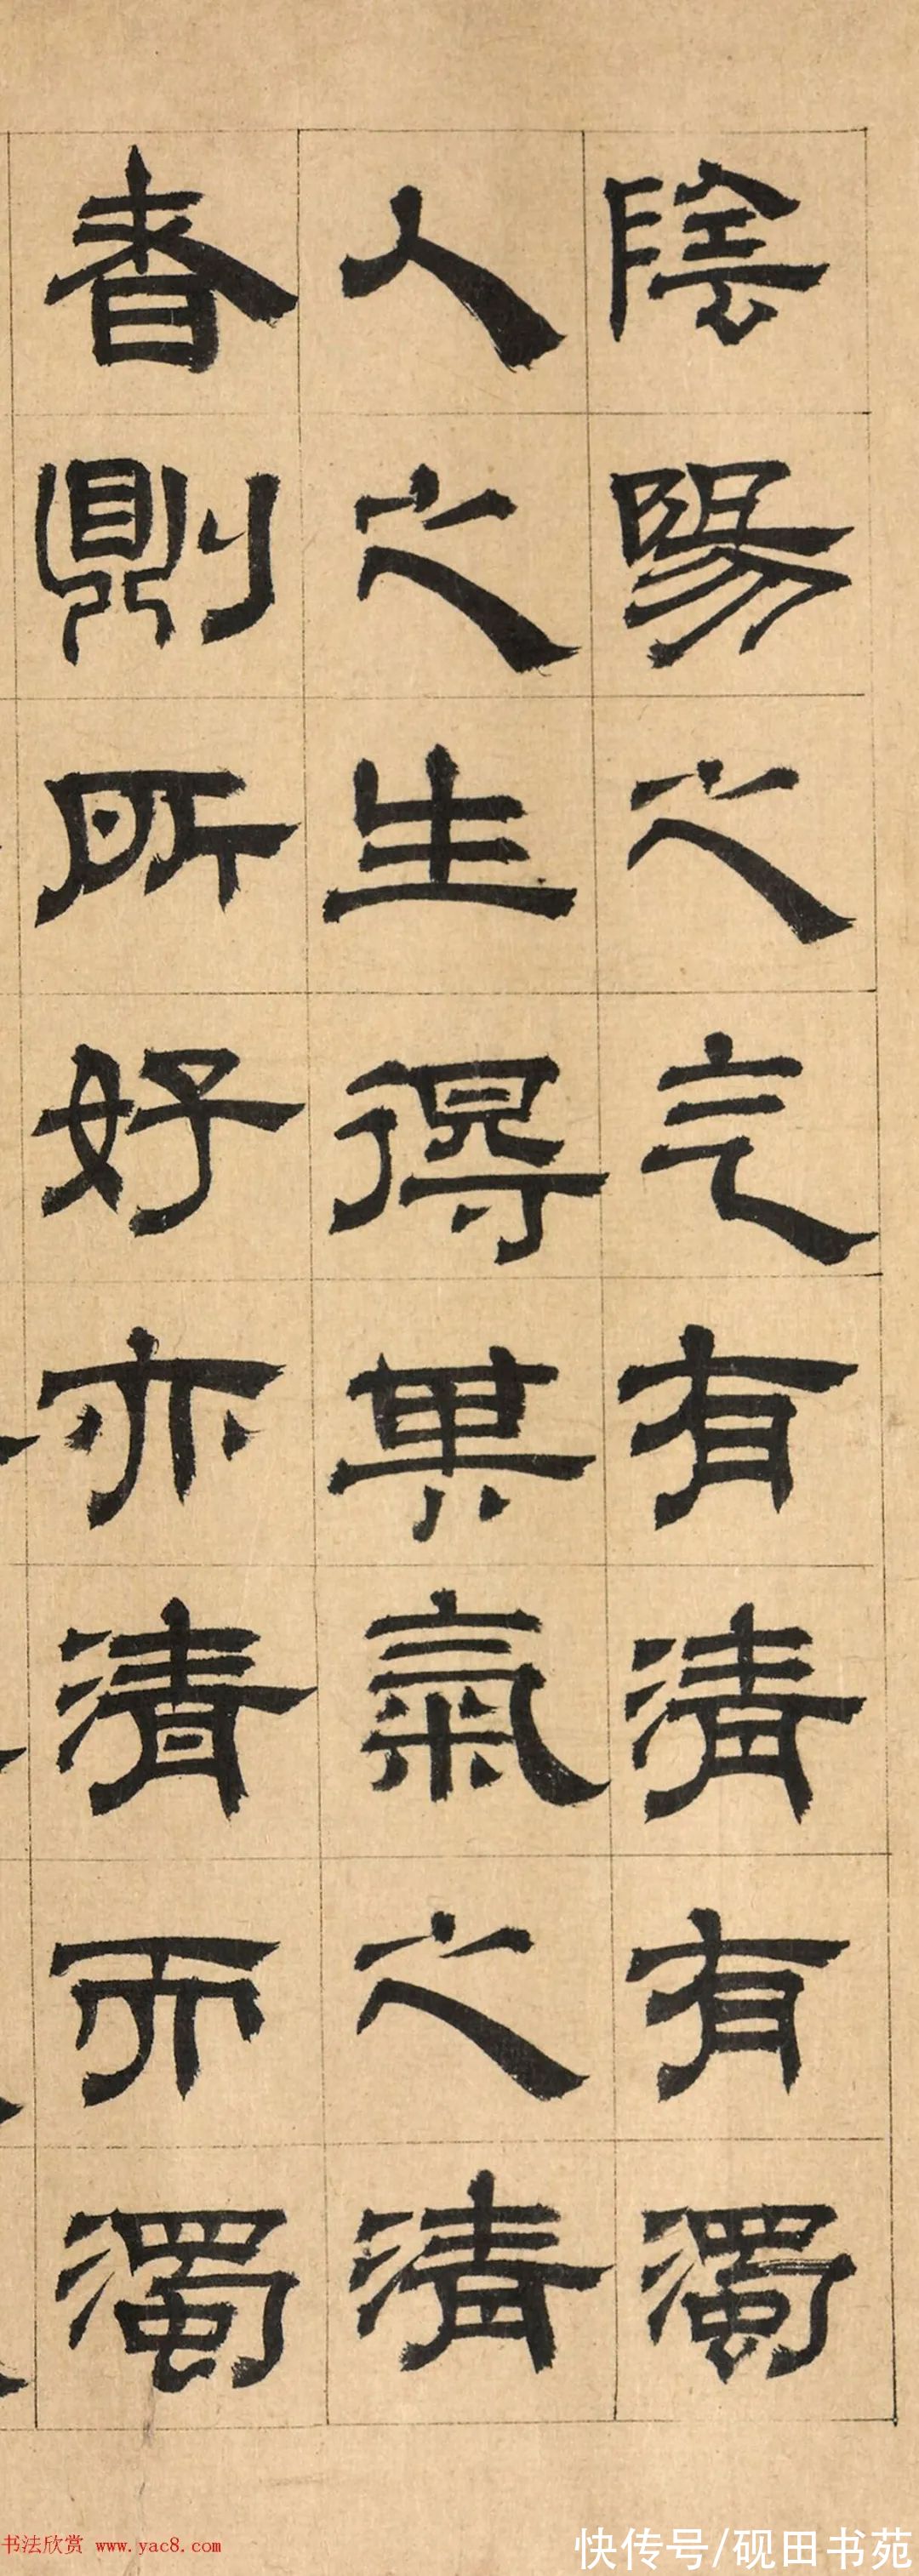 陰陽之气有清有濁
人之生得其氣之清
者則所好亦清而濁
书法欣赏 www.yac8.com
快传号/砚田书苑